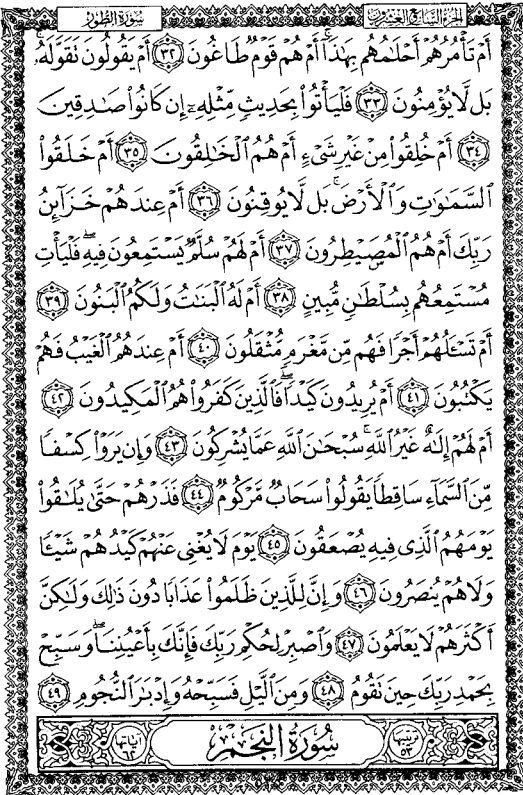 الجزء السابع والعشرون سورة الطور
أَمْ تَأْمُرُهُمْ أَحْلَٰمُهُم بِهَٰذَآ ۚ أَمْ هُمْ قَوْمٌ طَاغُونَ ﴿٣٢﴾ أَمْ يَقُولُونَ تَقَوَّلَهُۥ ۚ
بَل لَّا يُؤْمِنُونَ ﴿٣٣﴾ فَلْيَأْتُوا۟ بِحَدِيثٍ مِّثْلِهِۦٓ إِن كَانُوا۟ صَٰدِقِينَ
﴿٣٤﴾ أَمْ خُلِقُوا۟ مِنْ غَيْرِ شَىْءٍ أَمْ هُمُ ٱلْخَٰلِقُونَ ﴿٣٥﴾ أَمْ خَلَقُوا۟
ٱلسَّمَٰوَٰتِ وَٱلْأَرْضَ ۚ بَل لَّا يُوقِنُونَ ﴿٣٦﴾ أَمْ عِندَهُمْ خَزَآئِنُ
رَبِّكَ أَمْ هُمُ ٱلْمُصَۣيْطِرُونَ ﴿٣٧﴾ أَمْ لَهُمْ سُلَّمٌ يَسْتَمِعُونَ فِيهِ ۖ فَلْيَأْتِ
مُسْتَمِعُهُم بِسُلْطَٰنٍ مُّبِينٍ ﴿٣٨﴾ أَمْ لَهُ ٱلْبَنَٰتُ وَلَكُمُ ٱلْبَنُونَ ﴿٣٩﴾
أَمْ تَسْـَٔلُهُمْ أَجْرًا فَهُم مِّن مَّغْرَمٍ مُّثْقَلُونَ ﴿٤٠﴾ أَمْ عِندَهُمُ ٱلْغَيْبُ فَهُمْ
يَكْتُبُونَ ﴿٤١﴾ أَمْ يُرِيدُونَ كَيْدًا ۖ فَٱلَّذِينَ كَفَرُوا۟ هُمُ ٱلْمَكِيدُونَ ﴿٤٢﴾
أَمْ لَهُمْ إِلَٰهٌ غَيْرُ ٱللَّهِ ۚ سُبْحَٰنَ ٱللَّهِ عَمَّا يُشْرِكُونَ ﴿٤٣﴾ وَإِن يَرَوْا۟ كِسْفًا
مِّنَ ٱلسَّمَآءِ سَاقِطًا يَقُولُوا۟ سَحَابٌ مَّرْكُومٌ ﴿٤٤﴾ فَذَرْهُمْ حَتَّىٰ يُلَٰقُوا۟
يَوْمَهُمُ ٱلَّذِى فِيهِ يُصْعَقُونَ ﴿٤٥﴾ يَوْمَ لَا يُغْنِى عَنْهُمْ كَيْدُهُمْ شَيْـًٔا
وَلَا هُمْ يُنصَرُونَ ﴿٤٦﴾ وَإِنَّ لِلَّذِينَ ظَلَمُوا۟ عَذَابًا دُونَ ذَٰلِكَ وَلَٰكِنَّ
أَكْثَرَهُمْ لَا يَعْلَمُونَ ﴿٤٧﴾ وَٱصْبِرْ لِحُكْمِ رَبِّكَ فَإِنَّكَ بِأَعْيُنِنَا ۖ وَسَبِّحْ
بِحَمْدِ رَبِّكَ حِينَ تَقُومُ ﴿٤٨﴾ وَمِنَ ٱلَّيْلِ فَسَبِّحْهُ وَإِدْبَٰرَ ٱلنُّجُومِ ﴿٤٩﴾
ترتيبها ٥٣ سُورَةُ النَّجْمِ آياتها ٦٢